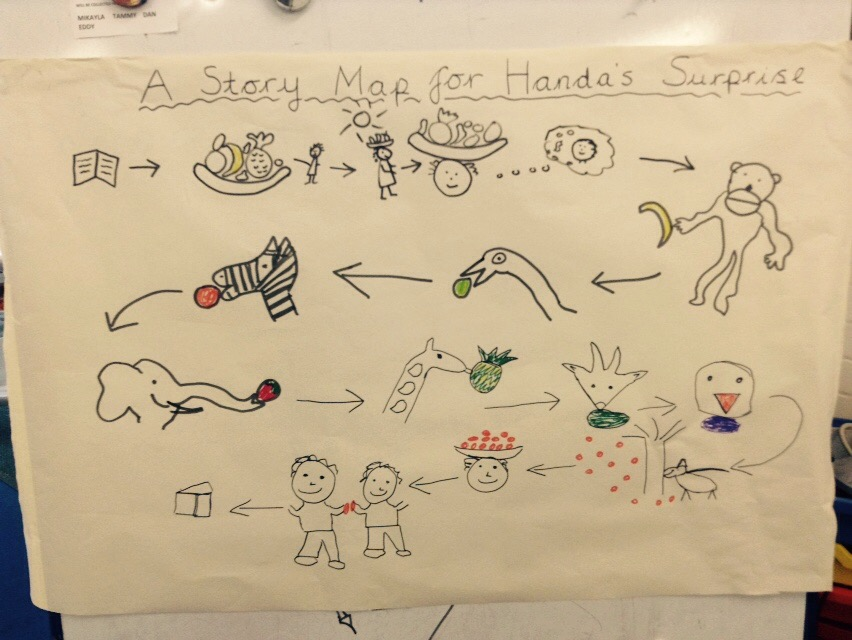 MIKAYLA TAMMY DAN
EDDY
A Story Map for Handa's Surprise